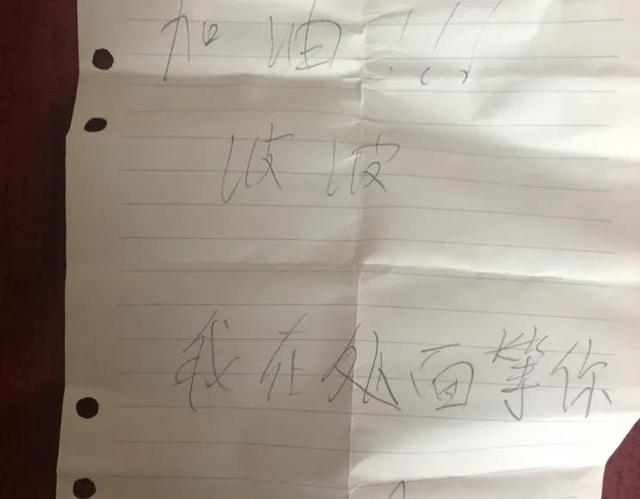 加油!!!
波波
我在外面等你